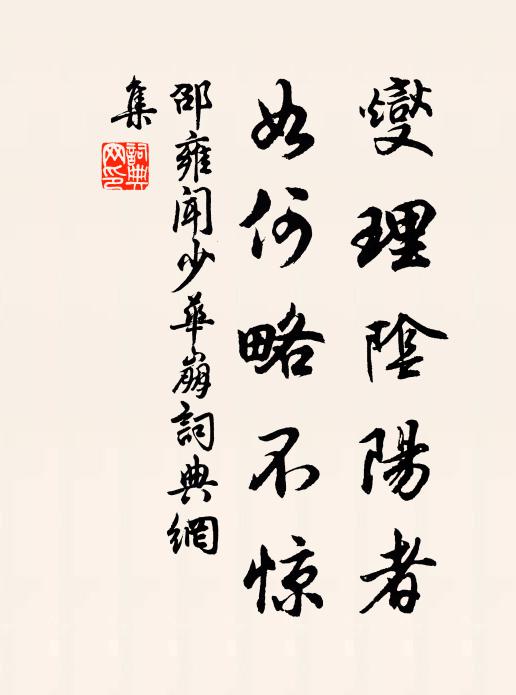 燮理陰陽者
如何略不惊
邵雍闻少華崩詞典網
集
詞典网印